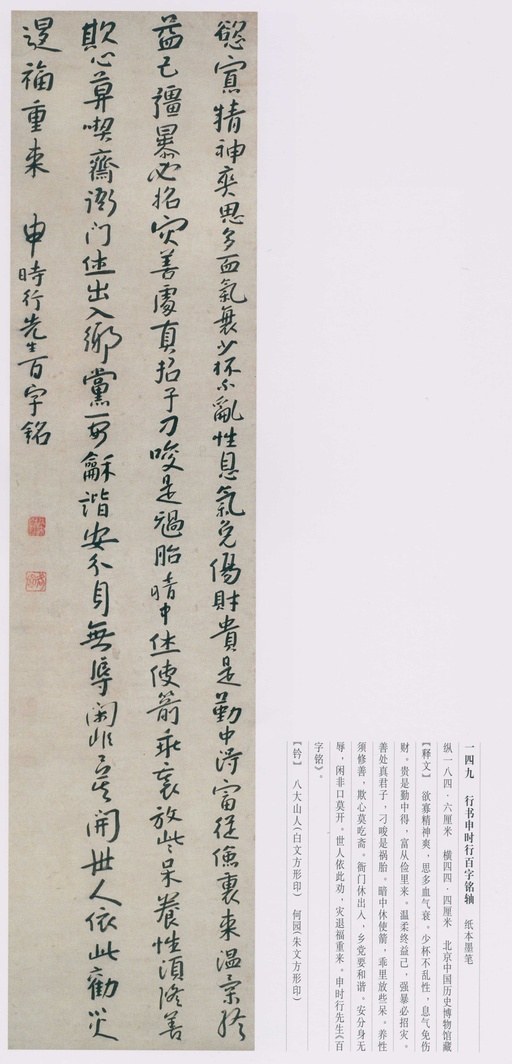 一四九 行书申时行百字铭轴 纸本墨笔
纵一八四·六厘米 横四四·四厘米 北京中国历史博物馆藏
【释文】 欲寡精神爽，思多血气衰。少杯不乱性，息气免伤
财。贵是勤中得，富从俭里来。温柔终益己，强暴必招灾。
善处真君子，刁唆是祸胎。暗中休使箭，乖里放些呆。养性
须修善，欺心莫吃斋。衙门休出入，乡党要和谐。安分身无
辱，闲非口莫开。世人依此劝，灾退福重来。申时行先生《百
字铭》。
【钤】 八大山人（白文方形印） 何园（朱文方形印）
慾寡精神爽思多血氣衰少杯不亂性息氣免傷財貴是勤中淂富從儉裏来温柔終
益己彊暴必招灾善處真君子刁唆是禍胎暗中休使箭乖裏放些呆養性湏修善
欺心莫喫齋衙门休出入鄉黨要龢諧安分身無辱閑非口莫開世人依此勸災
退福重来 申時行先生百字銘